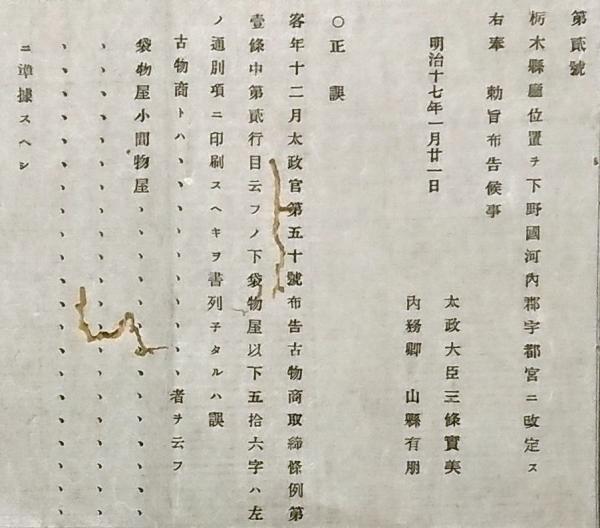 第貳號
栃木縣廳位置ヲ下野國河內郡宇都宮ニ改定ス
右奉　勅旨布告候事
明治十七年一月廿一日
太政大臣三條實美
內務卿　山縣有朋
○正　誤
客年十二月太政官第五十號布告古物商取締條例第
壹條中第貳行目云フノ下袋物屋以下五拾六字ハ左
ノ通別項ニ印刷スヘキヲ書列子タルハ誤
古物商トハ、、、、、、、、者ヲ云フ
袋物屋小間物屋、、、、、、、、、、、、、
、、、、、、、、、、、、、、、、、、、、
、、、、、、、、、、、、、、、、、、、、
ニ準據スヘシ